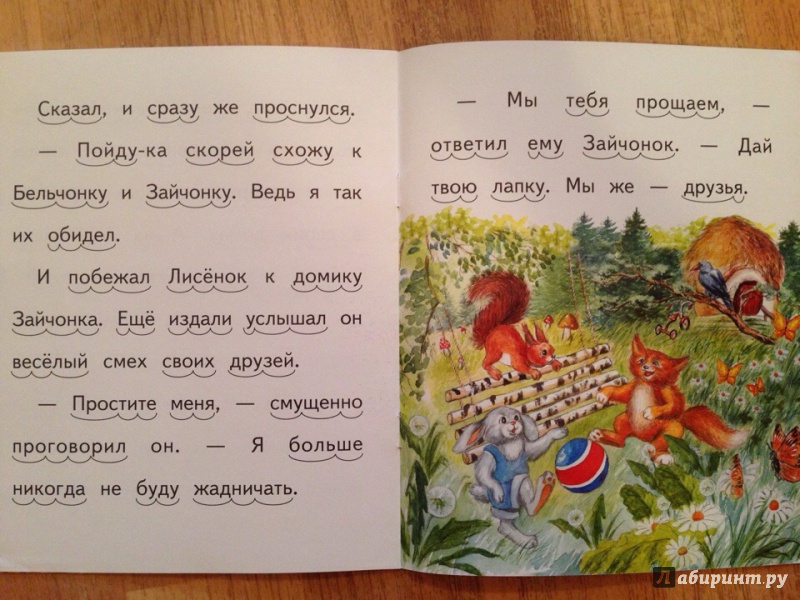 Сказал, и сразу же проснулся.
— Пойду-ка скорей схожу к
Бельчонку и Зайчонку. Ведь я так
их обидел.
И побежал Лисёнок к домику
Зайчонка. Ещё издали услышал он
весёлый смех своих друзей.
— Простите меня, — смущенно
проговорил он. — Я больше
никогда не буду жадничать.
— Мы тебя прощаем, —
ответил ему Зайчонок. — Дай
твою лапку. Мы же — друзья.
Лабиринт.ру